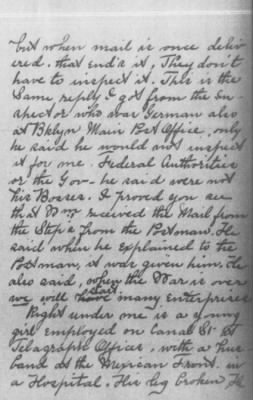 but when mail is once deliv
ered. that end's it, They don't
have to inspect it. This is the
Same reply I got from the In-
spector who was German also
at Bklyn Main Post Office, only
he said he would not inspect
it for me. Federal Authorities
or the Gov— he said were not
his Bosses. I proved you see
that Wm received the Mail from
the Steps & from the Postman. He
said when he explained to the
Postman, it was given him. He
also said, when the War is over
we will start many enterprises
"Right under me" is a young
girl employed on Canal St. at
Telagraph Office, with a hus
band at the Mexican Front. in
a Hospital. His leg broken He